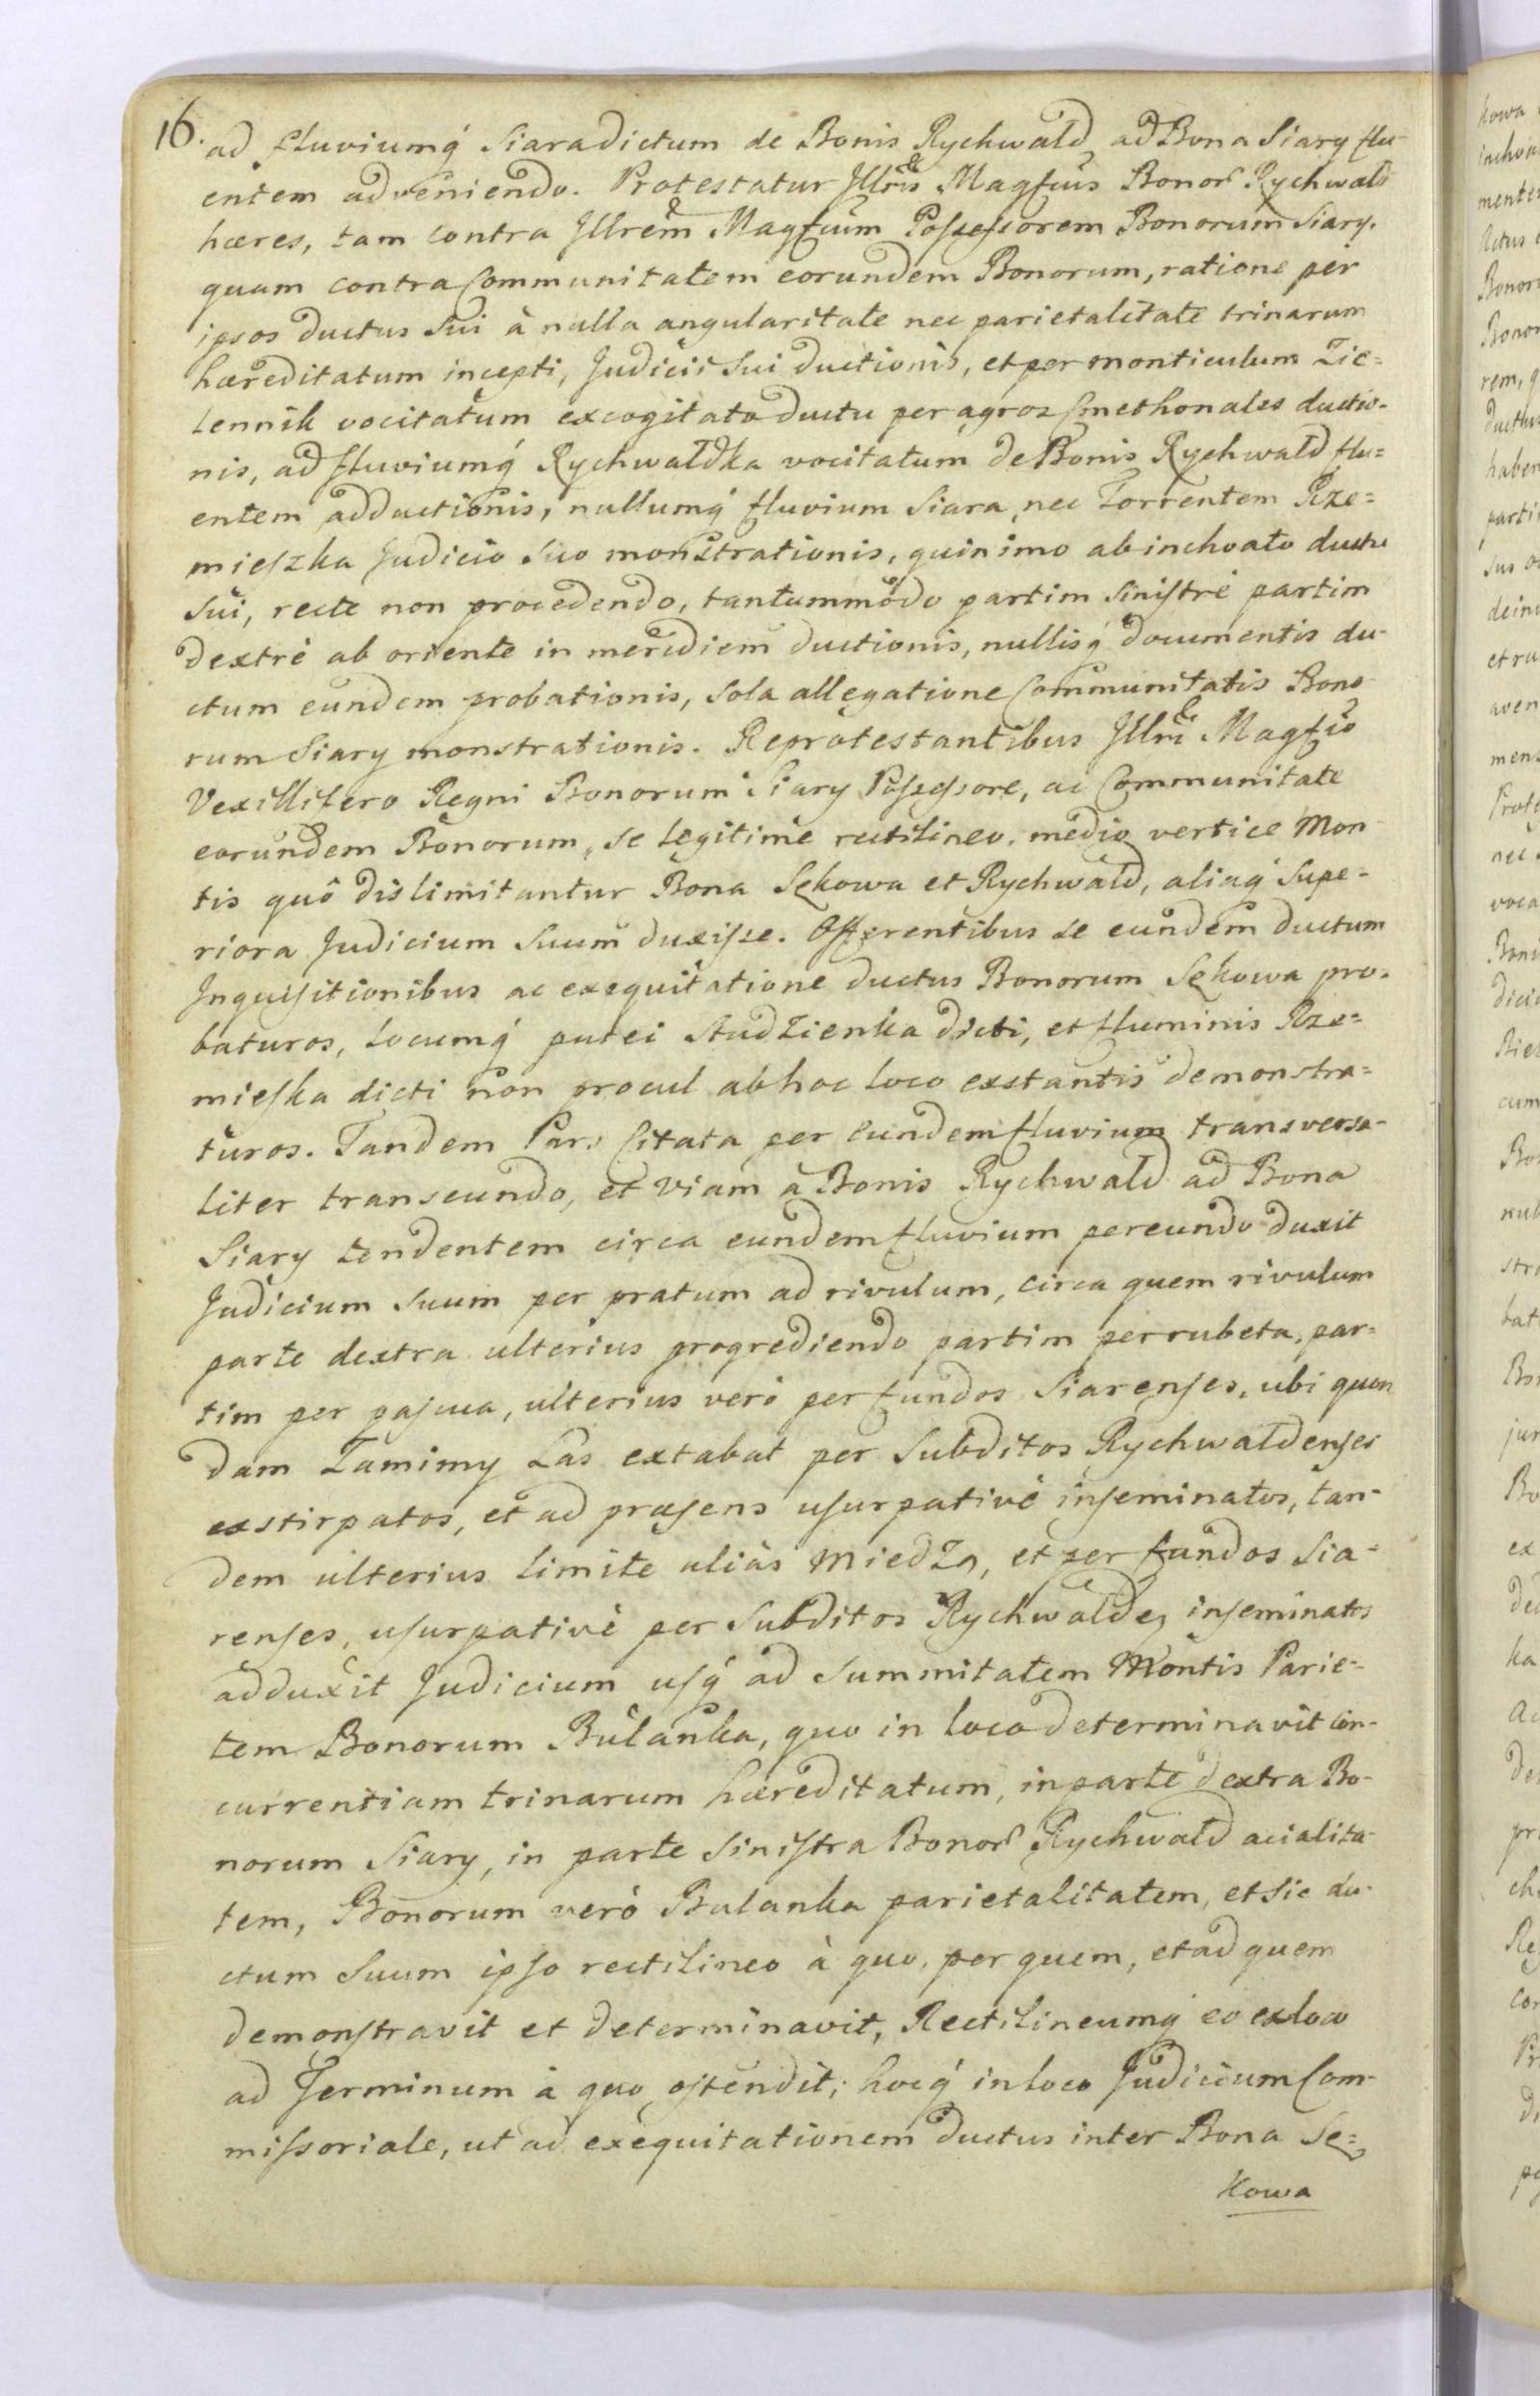 16.
ad fluviumq́ Siara dictum de Bonis Rychwałd ad Bona Siary flu-
entem adveniendo. Protestatur Illris Magfcus Bonor Rychwałd
hæres, tam contra Illrem Magfcum Possessorem Bonorum Siary,
quam contra Communitatem eorundem Bonorum, ratione per
ipsos ductus Sui à nulla angularitate nec parietalitate trinarum
hæreditatum incepti, Judicii Sui ductionis, et per monticulum Zie=
lennik vocitatum excogitato ductu per agros Cmethonales ductio-
nis, ad fluviumq́ Rychwałdka vocitatum de Bonis Rychwałd flu=
entem adductionis, nullumq́ fluvium Siara, nec Torrentem Rze=
mieszka Judicio Suo monstrationis, quinimo ab inchoato ductu
Sui, recte non procedendo, tantummodo partim Sinistrè partim
dextrè ab oriente in meridiem ductionis, nullisq́ documentis du-
ctum eundem probationis, Sola allegatione Communitatis Bono-
rum Siary monstrationis. Reprotestantibus Illri Magfco
Vexillifero Regni Bonorum Siary Possessore, ac Communitate
eorundem Bonorum, se legitime rectilineo, medio vertice Mon-
tis quô dislimitantur Bona Sękowa et Rychwałd, aliaq́ Supe-
riora Judicium Suum duxisse. Offerentibus se eundem ductum
Inquisitionibus ac exequitatione ductus Bonorum Sękowa pro-
baturos, locumq́ putei Studzienka dicti, et fluminis Rze=
mieska dicti non procul ab hoc loco exstantis demonstra=
turos. Tandem Pars Citata per eundem fluvium transversa-
liter transeundo, et viam à Bonis Rychwałd ad Bona
Siary tendentem circa eundem fluvium pereundo duxit
Judicium Suum per pratum ad rivulum, circa quem rivulum
parte dextra ulterius progrediendo partim per rubeta, par-
tim per pascua, ulterius verò per fundos Siarenses, ubi quon
dam Tamimy Las extabat per Subditos Rychwałdenses
exstirpatos, et ad præsens usurpativè inseminatos, tan-
dem ulterius limite aliàs Miedzą, et per fundos Sia-
renses, usurpativè per Subditos Rychwałdeñ inseminatos
adduxit Judicium usq́ ad Summitatem Montis Parie-
tem Bonorum Bulanka, quo in loco determinavit con-
currentiam trinarum hæreditatum, in parte dextra Bo-
norum Siary, in parte Sinistra Bonor Rychwałd acialita-
tem, Bonorum verò Bulanka parietalitatem, et sic du-
ctum Suum ipso rectilineo à quo, per quem, et ad quem
demonstravit et determinavit, Rectilineumq́ eo ex loco
ad Terminum à quo ostendit; hocq́ in loco Judicium Com-
missoriale, ut ad exequitationem ductus inter Bona Sę=
kowa